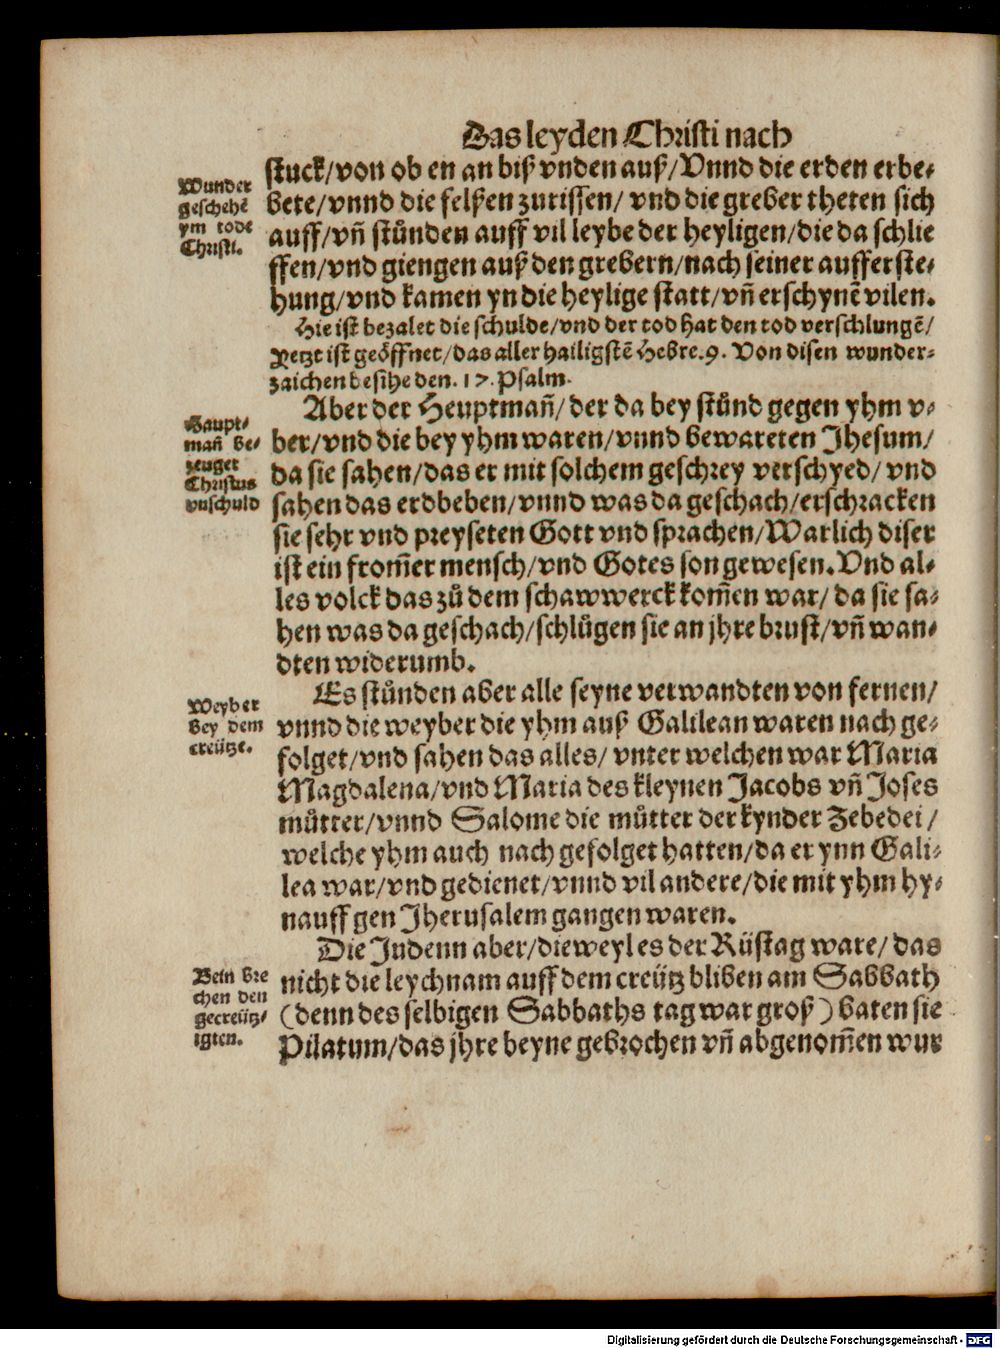 Das leyden Christi nach
stuck/von ob en an biß vnden auß/Vnnd die erden erbe-
bete/vnnd die felßen zurissen/ vnd die greber theten sich
auff/vñ stůnden auff vil leybe der heyligen/die da schlie
ffen/vnd giengen auß den grebern/nach seiner aufferste-
hung/vnd kamen yn die heylige statt/vñ erschynẽ vilen.
Wunder
geschehẽ
ym tode
Christi.
Hie ist bezalet die schulde/vnd der tod hat den tod verschlungẽ/
Yetzt ist geöffnet/das aller hailigstẽ Hebre.9. Von disen wunder-
zaichen besihe den.17.Psalm.
Aber der Heuptmañ/der da bey stůnd gegen yhm v-
ber/vnd die bey yhm waren/vnnd bewareten Jhesum/
da sie sahen/das er mit solchem geschrey verschyed/vnd
sahen das erdbeben/vnnd was da geschach/erschracken
sie sehr vnd preyseten Gott vnd sprachen/Warlich diser
ist ein from̃er mensch/vnd Gotes son gewesen.Vnd al-
les volck das zů dem schawwerck kom̃en war/da sie sa-
hen was da geschach/schlůgen sie an jhre brust/vñ wan-
dten widerumb.
Haupt-
mañ be-
zeuget
Christus
vnschuld
Es stůnden aber alle seyne verwandten von fernen/
vnnd die weyber die yhm auß Galilean waren nach ge-
folget/vnd sahen das alles/ vnter welchen war Maria
Magdalena/vnd Maria des kleynen Jacobs vñ Joses
můtter/vnnd Salome die můtter der kynder Zebedei/
welche yhm auch nach gefolget hatten/da er ynn Gali-
lea war/vnd gedienet/vnnd vil andere/die mit yhm hy-
nauff gen Jherusalem gangen waren.
Weyber
bey dem
creütze.
Die Judenn aber/dieweyl es der Rüstag ware/das
nicht die leychnam auff dem creütz bliben am Sabbath
(denn des selbigen Sabbaths tag war groß) baten sie
Pilatum/das jhre beyne gebrochen vñ abgenom̃en wur
Bein bre
chen den
gecreütz-
igten.
Digitalisierung gefördert durch die Deutsche Forschungsgemeinschaft - DFG